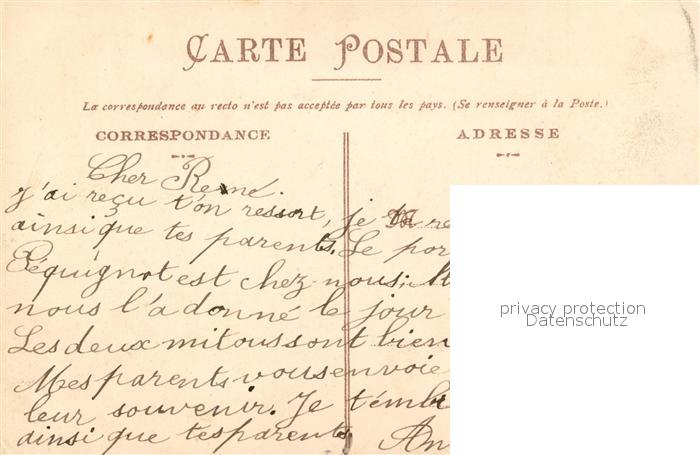 CARTE POSTALE
La correspondance au recto n'est pas acceptée par tous les pays. (Se renseigner à la Poste.)
CORRESPONDANCE
ADRESSE
Cher René.
j'ai reçu t'on ressort, je te re
M
ainsi que tes parents. Le por
Péquignot est chez nous:
nous l'a donné le jour
Les deux mitous sont bien
Mes parents vous envoie
leur souvenir. Je t'embr
ainsi que tes parents. An
privacy protection
Datenschutz